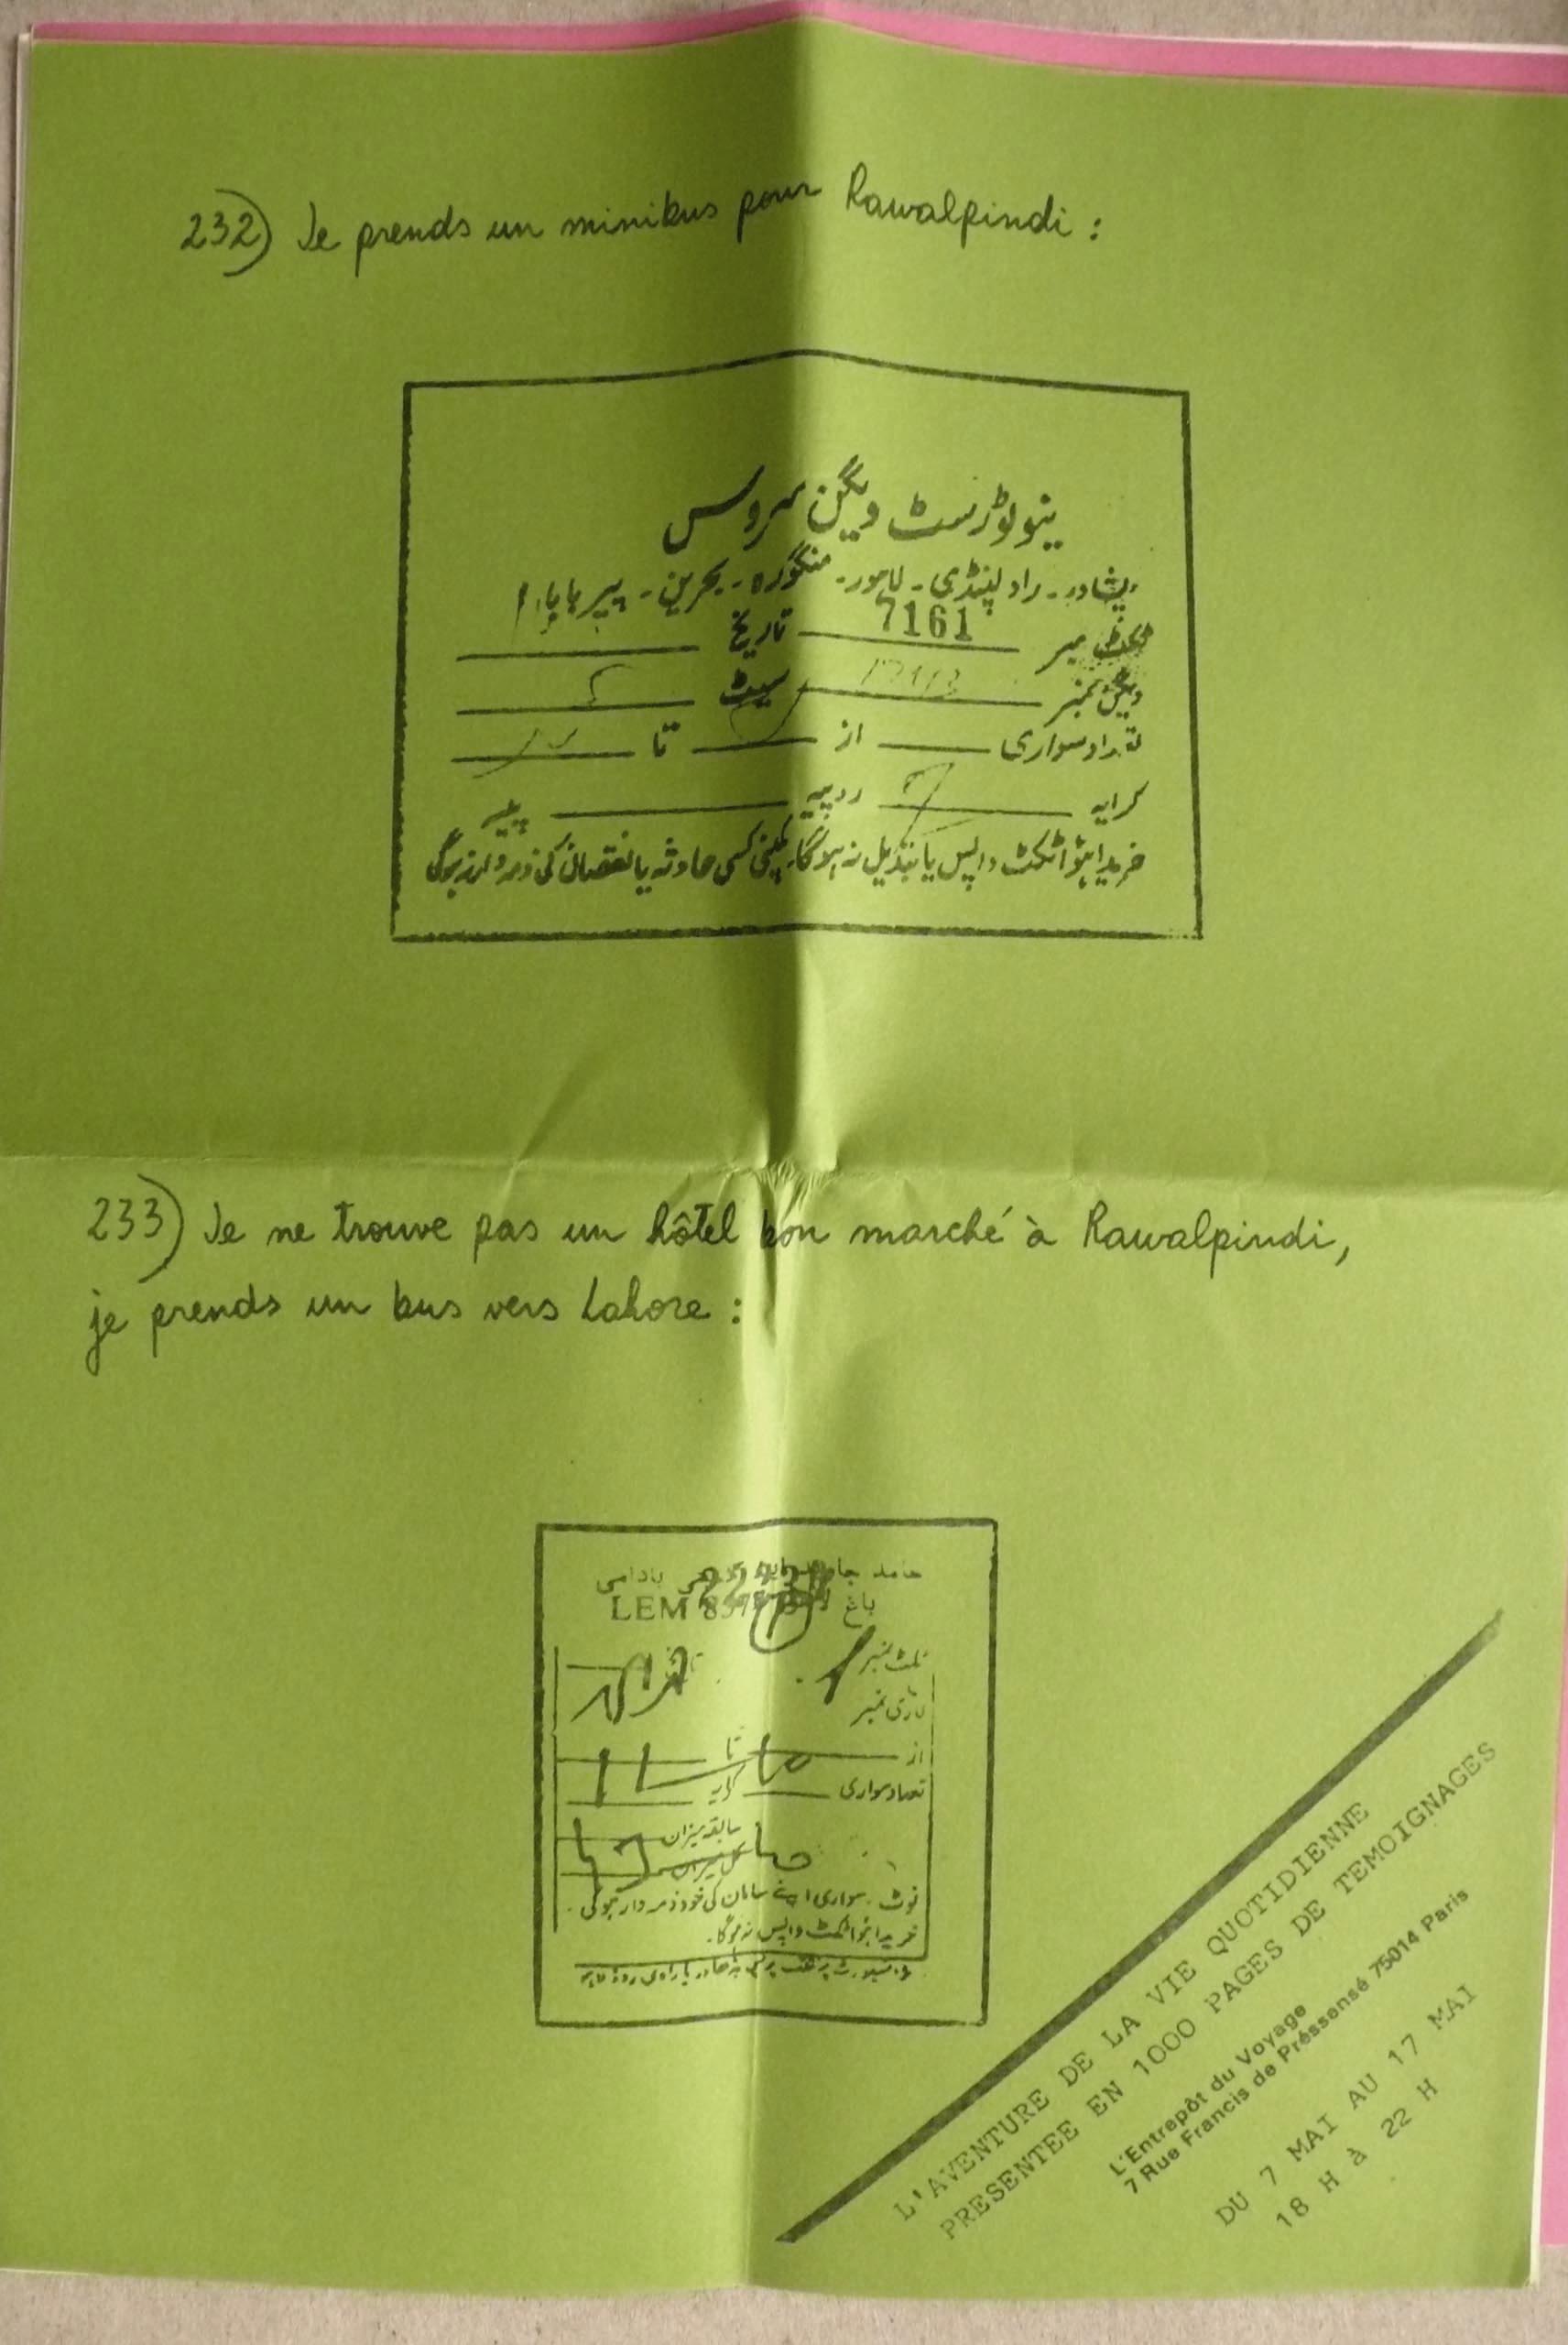 232) Je prends un minibus pour Rawalpindi :
نیو ٹورسٹ ویگن سروس
پشاور - راولپنڈی - لاہور - منگورہ - بحرین - پیر بابا
ٹکٹ نمبر 7161 تاریخ
ویگن نمبر سیٹ
تعداد سواری از تا
کرایہ روپیہ پیسہ
خریدا ہوا ٹکٹ واپس یا تبدیل نہ ہوگا۔ کمپنی کسی حادثہ یا نقصان کی ذمہ دار نہ ہوگی
233) Je ne trouve pas un hôtel bon marché à Rawalpindi,
je prends un bus vers Lahore :
حامد بادامی
باغ LEM
ٹکٹ نمبر
گاڑی نمبر
از تا
تعداد سواری کرایہ
سابقہ میزان
کل میزان
نوٹ۔ سواری اپنے سامان کی خود ذمہ دار ہوگی۔
خریدا ہوا ٹکٹ واپس نہ ہوگا۔
L'AVENTURE DE LA VIE QUOTIDIENNE
PRESENTEE EN 1000 PAGES DE TEMOIGNAGES
L'Entrepôt du Voyage
7 Rue Francis de Préssensé 75014 Paris
DU 7 MAI AU 17 MAI
18 H à 22 H